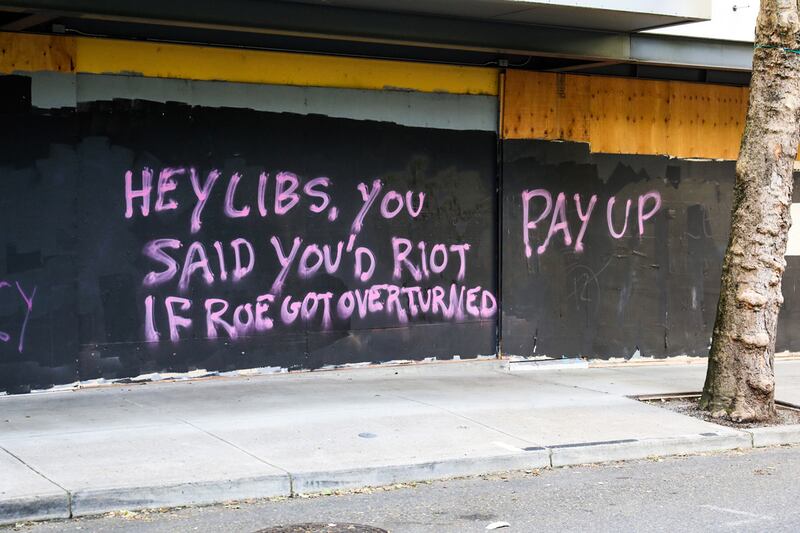 HEY LIBS, YOU
SAID YOU'D RIOT
IF ROE GOT OVERTURNED
PAY UP